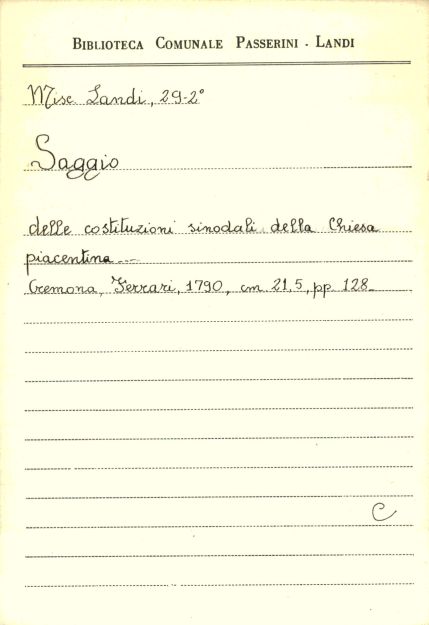 BIBLIOTECA COMUNALE PASSERINI - LANDI
Misc. Landi, 29-2°
Saggio
delle costituzioni sinodali della Chiesa
piacentina ...
Cremona, Ferrari, 1790, cm. 21.5, pp. 128.
C